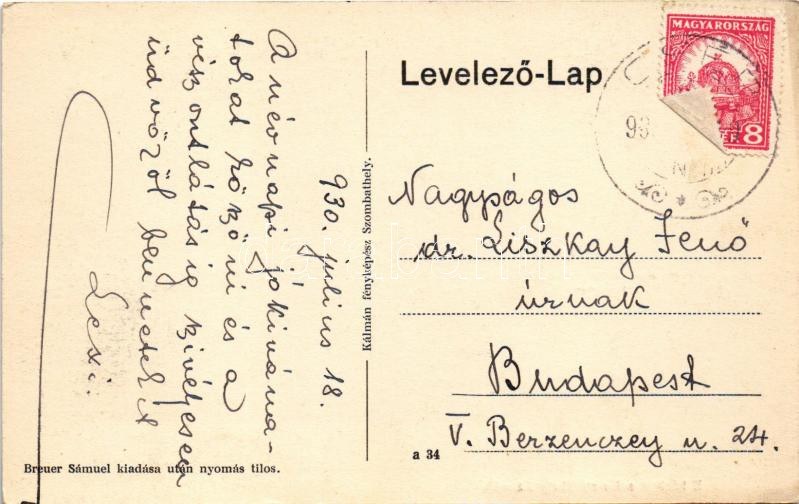 MAGYARORSZÁG
8
Levelező-Lap
93
930. július 18.
A névnapi jókivána-
tokat köszöni és a
viszontlátásig szivélyesen
üdvözöl benneteket
Lexi.
Nagyságos
dr. Liszkay Jenő
úrnak
Budapest
V. Berzenczey u. 24.
Kálmán fényképész Szombathely.
Breuer Sámuel kiadása után nyomás tilos.
a 34